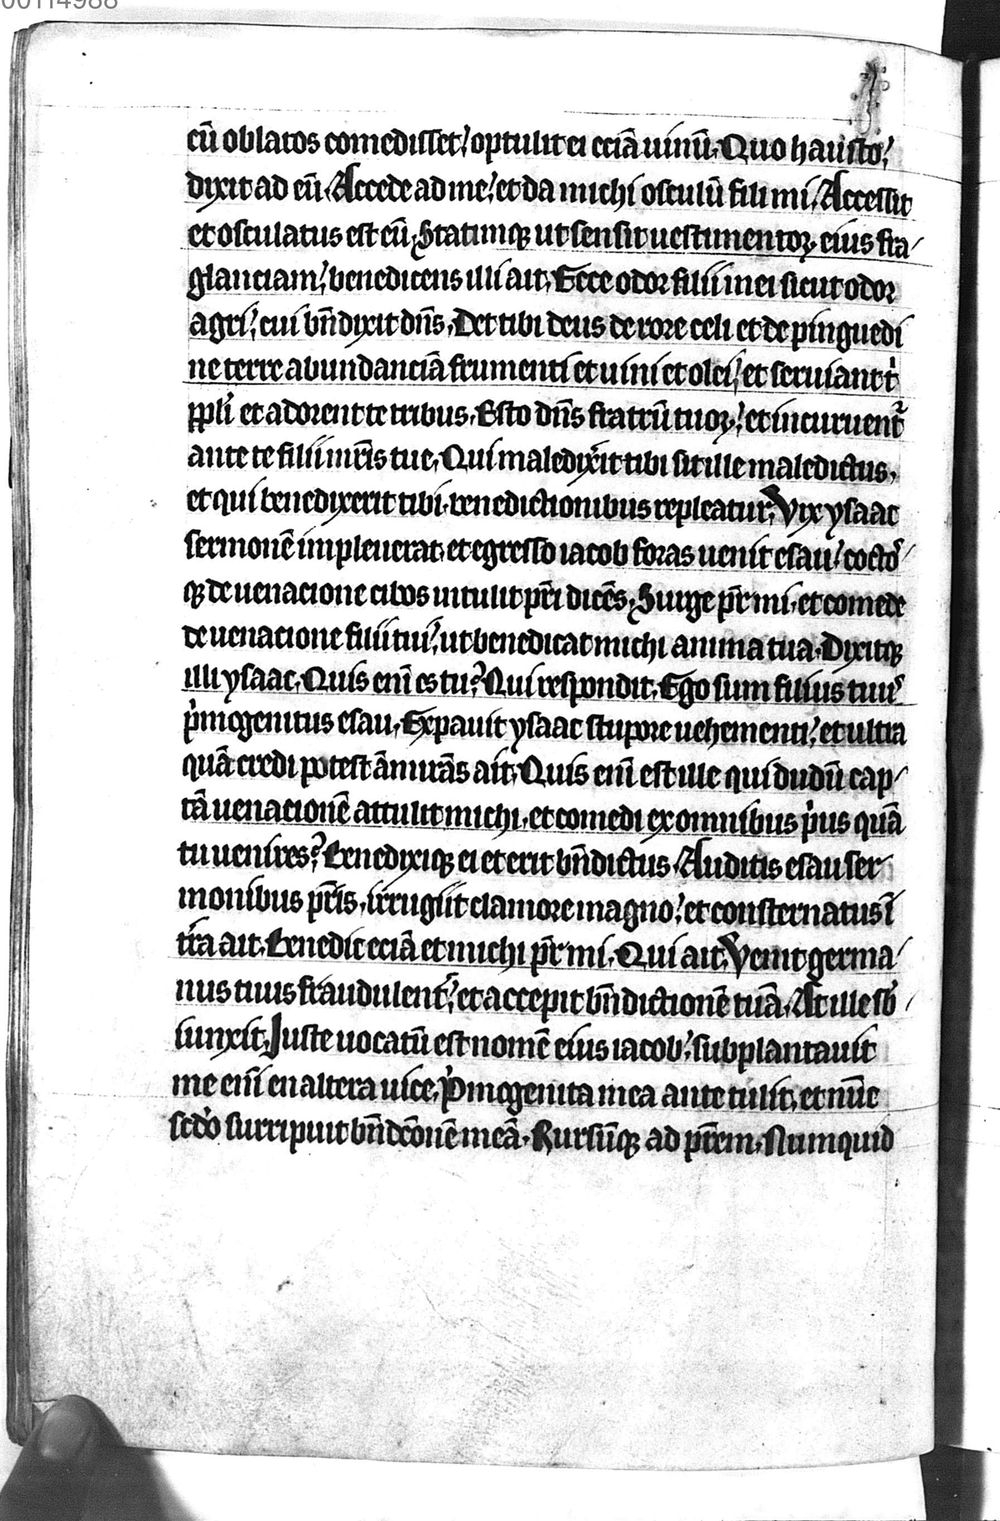 00114988
cū oblatos comedisset, optulit ei eciā uinū. Quo hausto,
dixit ad eū. Accede ad me, et da michi osculū fili mi. Accessit
et osculatus est eū. Statimqꝫ ut sensit uestimentoꝝ eius fra/
glanciam, benedicens illi ait. Ecce odor filii mei sicut odor
agri, cui bn̄dixit dn̄s. Det tibi deus de rore celi et de pinguedi
ne terre abundanciā frumenti et uini et olei, et seruiant t'
ppl'i et adorent te tribus. Esto dn̄s fratrū tuoꝝ, et incuruent᷑
ante te filii mr̄is tue. Qui maledix'it tibi sit ille maledictus,
et qui benedixerit tibi, benedictionibus repleatur. Vix ysaac
sermonē impleuerat, et egresso iacob foras uenit esau, cocto/
qꝫ de uenacione cibos intulit pr̄i dicēs. Surge pr̄ mi, et comede
de uenacione filii tui, ut benedicat michi anima tua. Dixitqꝫ
illi ysaac. Quis enī es tu? Qui respondit. Ego sum filius tuus
p'mogenitus esau. Expauit ysaac stupore uehementi, et ultra
quā credi potest āmirās ait. Quis enī est ille qui dudū cap/
tā uenacionē attulit michi, et comedi ex omnibus p'us quā
tu uenires? Benedixiqꝫ ei et erit bn̄dictus. Auditis esau ser
monibus pr̄is, irrugiit clamore magno, et consternatus ī
tr̄a ait. Benedic eciā et michi pr̄ mi. Qui ait. Venit germa/
nus tuus fraudulent', et accepit bn̄dictionē tuā. At ille sb'/
iunxit. Juste uocatū est nomē eius iacob, subplantauit
me enī en altera uice. P'mogenita mea ante tulit, et nūc
scd'o surripuit bn̄dcōnē meā. Rursūqꝫ ad pr̄em. Numquid